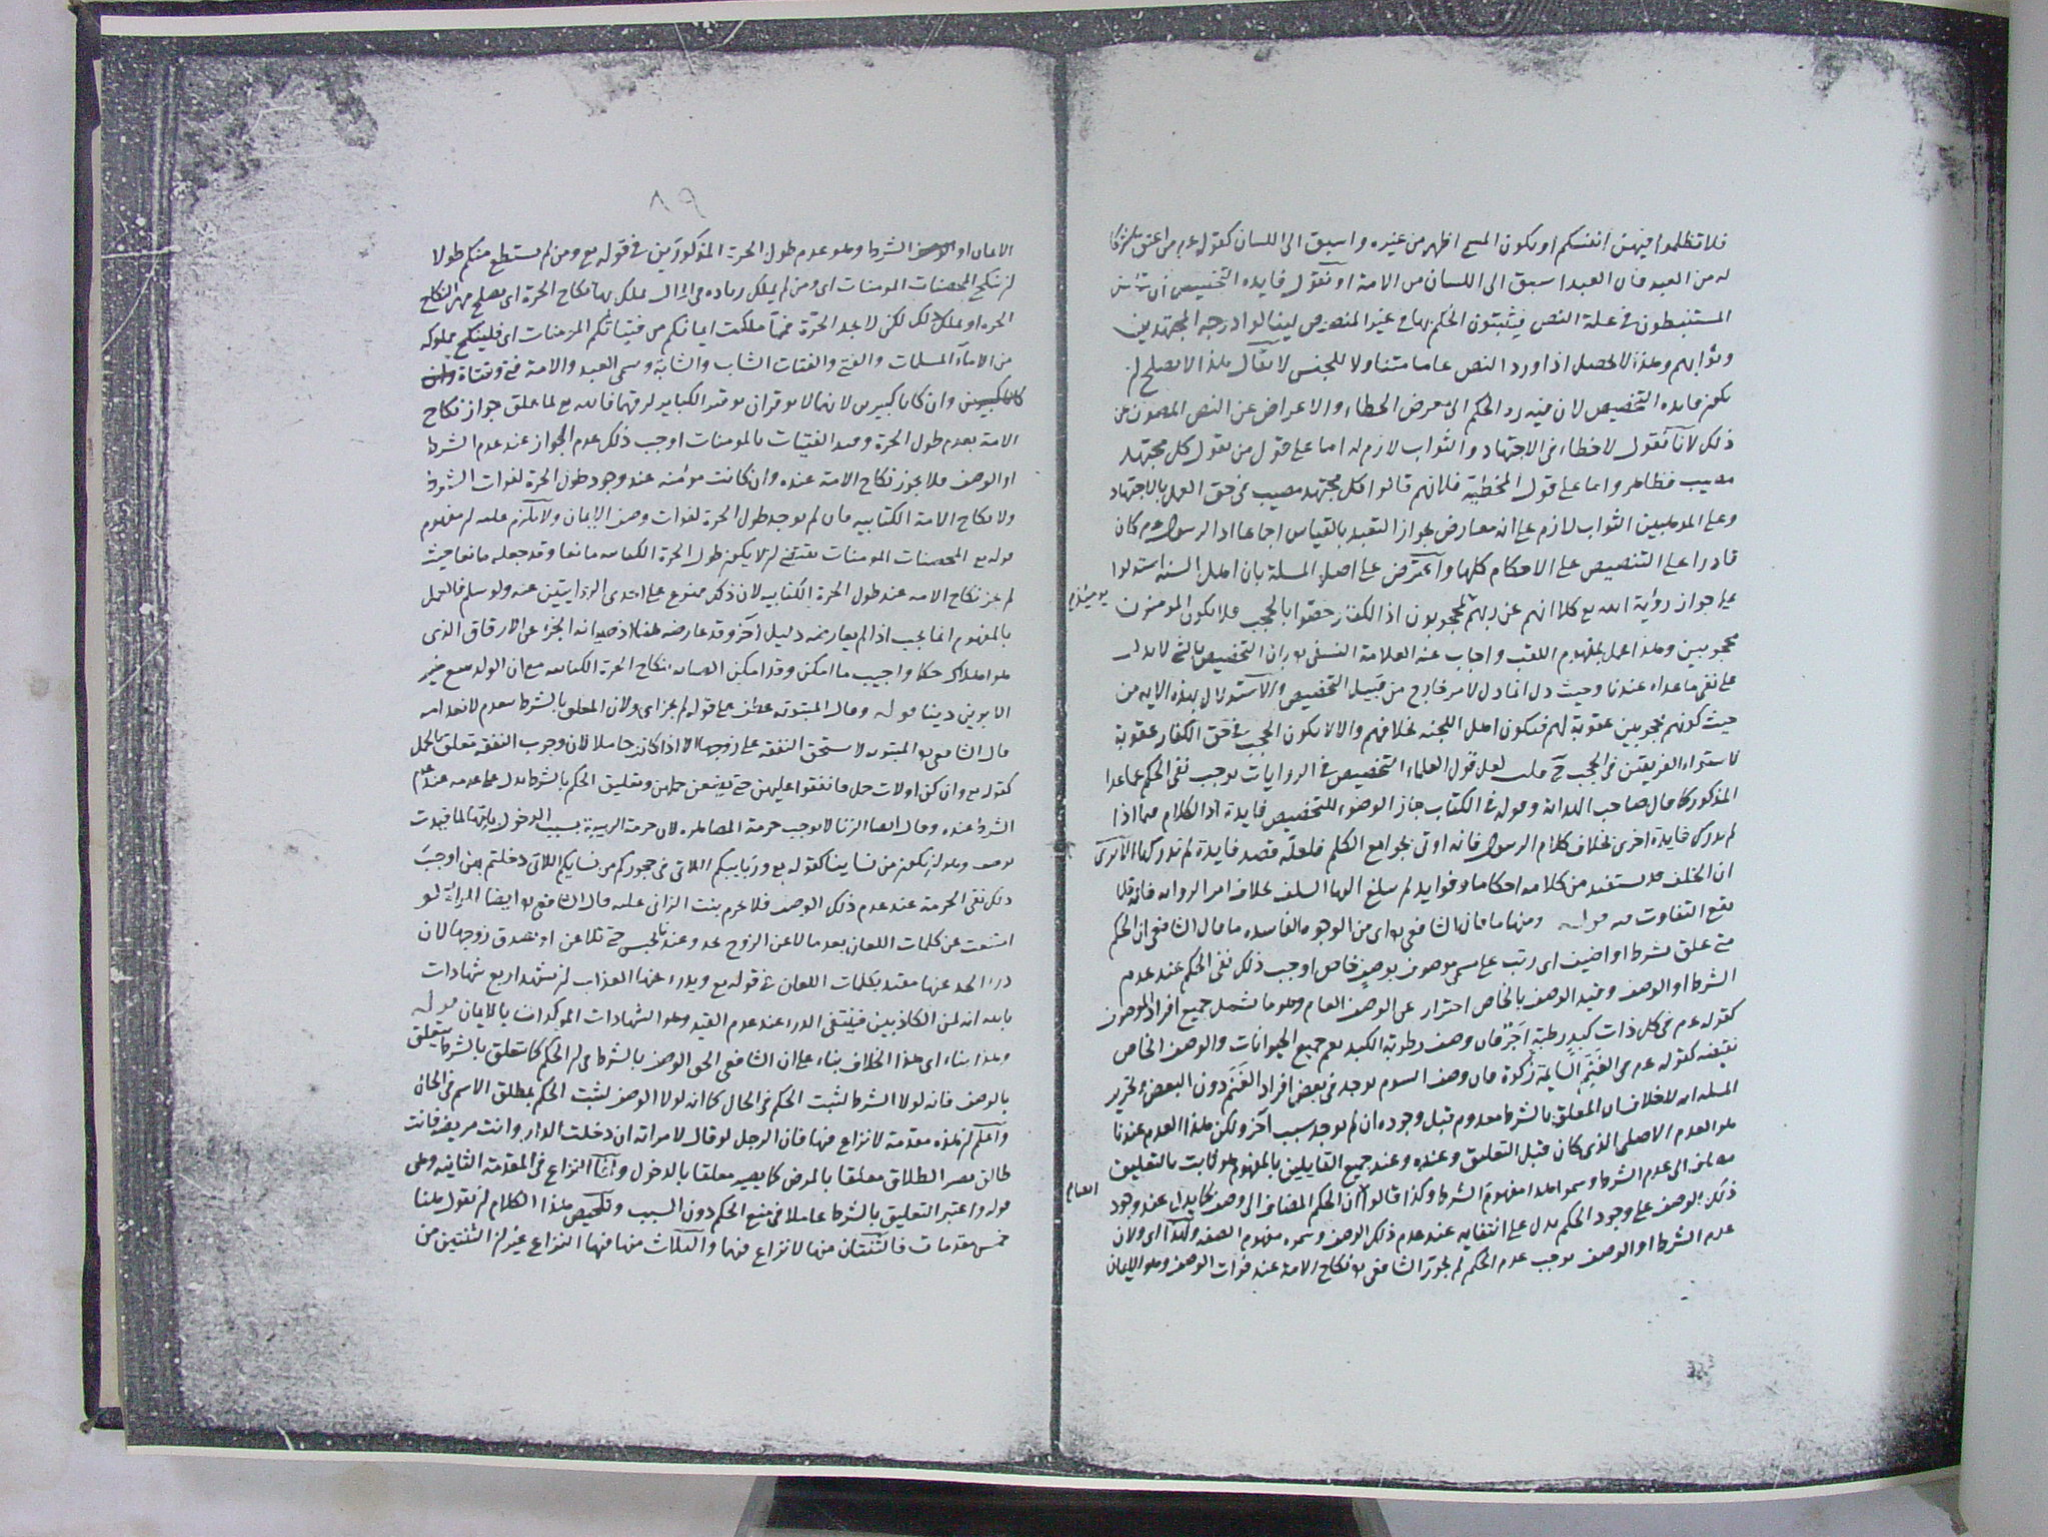 فلا تظلموا فيهن انفسكم او يكون المسمى اظهر من غيره واسبق الى اللسان كقوله عم من اعتق شركا
له من العبد فان العبد اسبق الى اللسان من الامة او نقول فايده التخصيص ان
المستنبطون في علة النص فيثبتون الحكم بها في غير المنصوص لينالوا درجه المجتهدين
وثوابهم وهذا لا يحصل اذا ورد النص عاما متناولا للجنس لا يقال هذا لا يصلح ان
يكون فايده التخصيص لان فيه رد الحكم الى معرض الخطاء والاعراض عن النص المصون عن
ذلك لانا نقول لا خطاء في الاجتهاد والثواب لازم له اما على قول من يقول كل مجتهد
مصيب فظاهر واما على قول المخطيه فلانهم قالوا كل مجتهد مصيب في حق العمل بالاجتهاد
وعلى المذهبين الثواب لازم على انه معارض بجواز التعبد بالقياس اجماعا اذ الرسول عم كان
قادرا على التنصيص على الاحكام كلها واعترض على اصل المسلة بان اهل السنه استدلوا
على جواز رؤية الله تع كلا انهم عن ربهم لمحجوبون اذ الكفار خصوا بالحجب فلا يكون المومنون
يومئذ
محجوبين وهذا عمل بمفهوم اللقب واجاب عنه العلامة النسفي بان التخصيص بالشئ لا يدل
على نفي ما عداه عندنا وحيث دل انما دل لامر خارج من قبيل التخصيص والاستدلال بهذه الايه من
حيث كونهم محجوبين عقوبة لهم فيكون اهل الجنه بخلافهم والا لا يكون الحجب في حق الكفار عقوبة
لاستواء الفريقين في الحجب لعل قول العلماء التخصيص في الروايات يوجب نفي الحكم عما عدا
المذكور كما قال صاحب الهداية وقوله في الكتاب جاز الوضوء للتخصيص فايدة اذ الكلام فيما اذا
لم يدرك فايدة اخرى بخلاف كلام الرسول فانه اوتي بجوامع الكلم فلعله قصد فايدة لم ندركها الا ترى
ان الخلف قد يستفيد من كلامه احكاما وفوايد لم يبلغ اليها السلف بخلاف امر الروايه فانه قلما
يقع التفاوت فيه قوله ومنها ما قال الشافعي اي من الوجوه الفاسده ما قال الشافعي ان الحكم
متى علق بشرط او اضيف اي رتب على مسمى موصوف بوصف خاص اوجب ذلك نفي الحكم عند عدم
الشرط او الوصف وقيد الوصف بالخاص احتراز عن الوصف العام وهو ما يشمل جميع افراد الموصوف
كقوله عم في كل ذات كبد رطبة اجر فان وصف رطوبة الكبد يعم جميع الحيوانات والوصف الخاص
نقيضه كقوله عم في الغنم السايمة زكوة فان وصف السوم يوجد في بعض افراد الغنم دون البعض وتحرير
المسله انه لا خلاف ان المعلق بالشرط معدوم قبل وجوده ان لم يوجد سبب آخر ولكن هذا العدم عندنا
هو العدم الاصلي الذي كان قبل التعليق وعنده وعند جميع القايلين بالمفهوم هو ثابت بالتعليق
مضاف الى عدم الشرط وسموا هذا مفهوم الشرط وكذا قالوا ان الحكم المضاف الى وصف كما يدل عند وجود
ذلك الوصف على وجود الحكم يدل على انتفايه عند عدم ذلك الوصف وسموه مفهوم الصفه ولهذا اي ولان
عدم الشرط او الوصف يوجب عدم الحكم لم يجوز الشافعي نكاح الامة عند فوات الوصف وهو الايمان
٨٩
الايمان او الشرط وهو عدم طول الحرة المذكورين في قوله تع ومن لم يستطع منكم طولا
ان ينكح المحصنات المومنات اي ومن لم يملك زياده في المال يملك بها نكاح الحرة اي يصلح مهر النكاح
الحره او يملك ذلك لكن لا يجد الحرة فمما ملكت ايمانكم من فتياتكم المومنات اي فلينكح مملوكه
من الاماء المسلمات والفتى والفتاة الشاب والشابة وسمى العبد والامة فتى وفتاة وان
كانا كبيرين وان كانا كبيرين لانهما لا يوقران توقير الكباير لرقهما فالله تع لما علق جواز نكاح
الامة بعدم طول الحرة وقيد الفتيات بالمومنات اوجب ذلك عدم الجواز عند عدم الشرط
او الوصف فلا يجوز نكاح الامة عنده وان كانت مومنه عند وجود طول الحرة لفوات الشرط
ولا نكاح الامة الكتابيه فان لم يوجد طول الحرة لفوات وصف الايمان ولا يلزم عليه ان مفهوم
قوله تع المحصنات المومنات يقتضي ان لا يكون طول الحرة الكتابيه مانعا وقد جعله مانعا حيث
لم يجز نكاح الامه عند طول الحرة الكتابيه لان ذلك ممنوع على احدى الروايتين عنه ولو سلم فالعمل
بالمفهوم انما يجب اذا لم يعارضه دليل آخر وقد عارضه ههنا اذ صيانه الجزء عن الارقاق الذي
هو اهلاك حكما واجب ما امكن وقد امكن الصيانه بنكاح الحرة الكتابيه مع ان الولد يتبع خير
الابوين دينا قوله وقال المبتوته عطف على قوله لم يجز اي ولان المعلق بالشرط ينعدم لانعدامه
قال الشافعي المبتوته لا تستحق النفقه على زوجها الا اذا كانت حاملا لان وجوب النفقه تعلق بالحمل
كقوله تع وان كن اولات حمل فانفقوا عليهن حتى يضعن حملهن وتعليق الحكم بالشرط يدل على عدمه عند عدم
الشرط عنده وقال ايضا الزنا لا يوجب حرمة المصاهره لان حرمة الربيبة بسبب الدخول بامها لما قيدت
بوصف وهو ان يكون من نساينا كقوله تع وربايبكم اللاتي في حجوركم من نسايكم اللاتي دخلتم بهن اوجب
ذلك نفي الحرمة عند عدم ذلك الوصف فلا يحرم بنت الزاني عليه قال الشافعي ايضا المراة لو
امتنعت عن كلمات اللعان بعد ما لاعن الزوج تحد وعندنا تحبس حتى تلاعن او تصدق زوجها لان
درء الحد عنها مقيد بكلمات اللعان في قوله تع ويدرء عنها العذاب ان تشهد اربع شهادات
بالله انه لمن الكاذبين فينتفي الدرء عند عدم القيد وهو الشهادات الموكدات بالايمان قوله
وهذا بناء اي هذا الخلاف بناء على ان الشافعي الحق الوصف بالشرط في ان الحكم كما يتعلق بالشرط يتعلق
بالوصف فانه لولا الشرط لثبت الحكم في الحال كما انه لولا الوصف لثبت الحكم بمطلق الاسم في الحال
واعلم ان هذه مقدمة لا نزاع فيها فان الرجل لو قال لامراته ان دخلت الدار وانت مريضه فانت
طالق يصير الطلاق معلقا بالمرض كما يصير معلقا بالدخول وانما النزاع في المقدمة الثانيه وهي
قوله واعتبر التعليق بالشرط عاملا في منع الحكم دون السبب وتلخيص هذا الكلام ان نقول ههنا
خمس مقدمات فالثنتان منها لا نزاع فيها والثلاث منها فيها النزاع غير ان الثنتين من